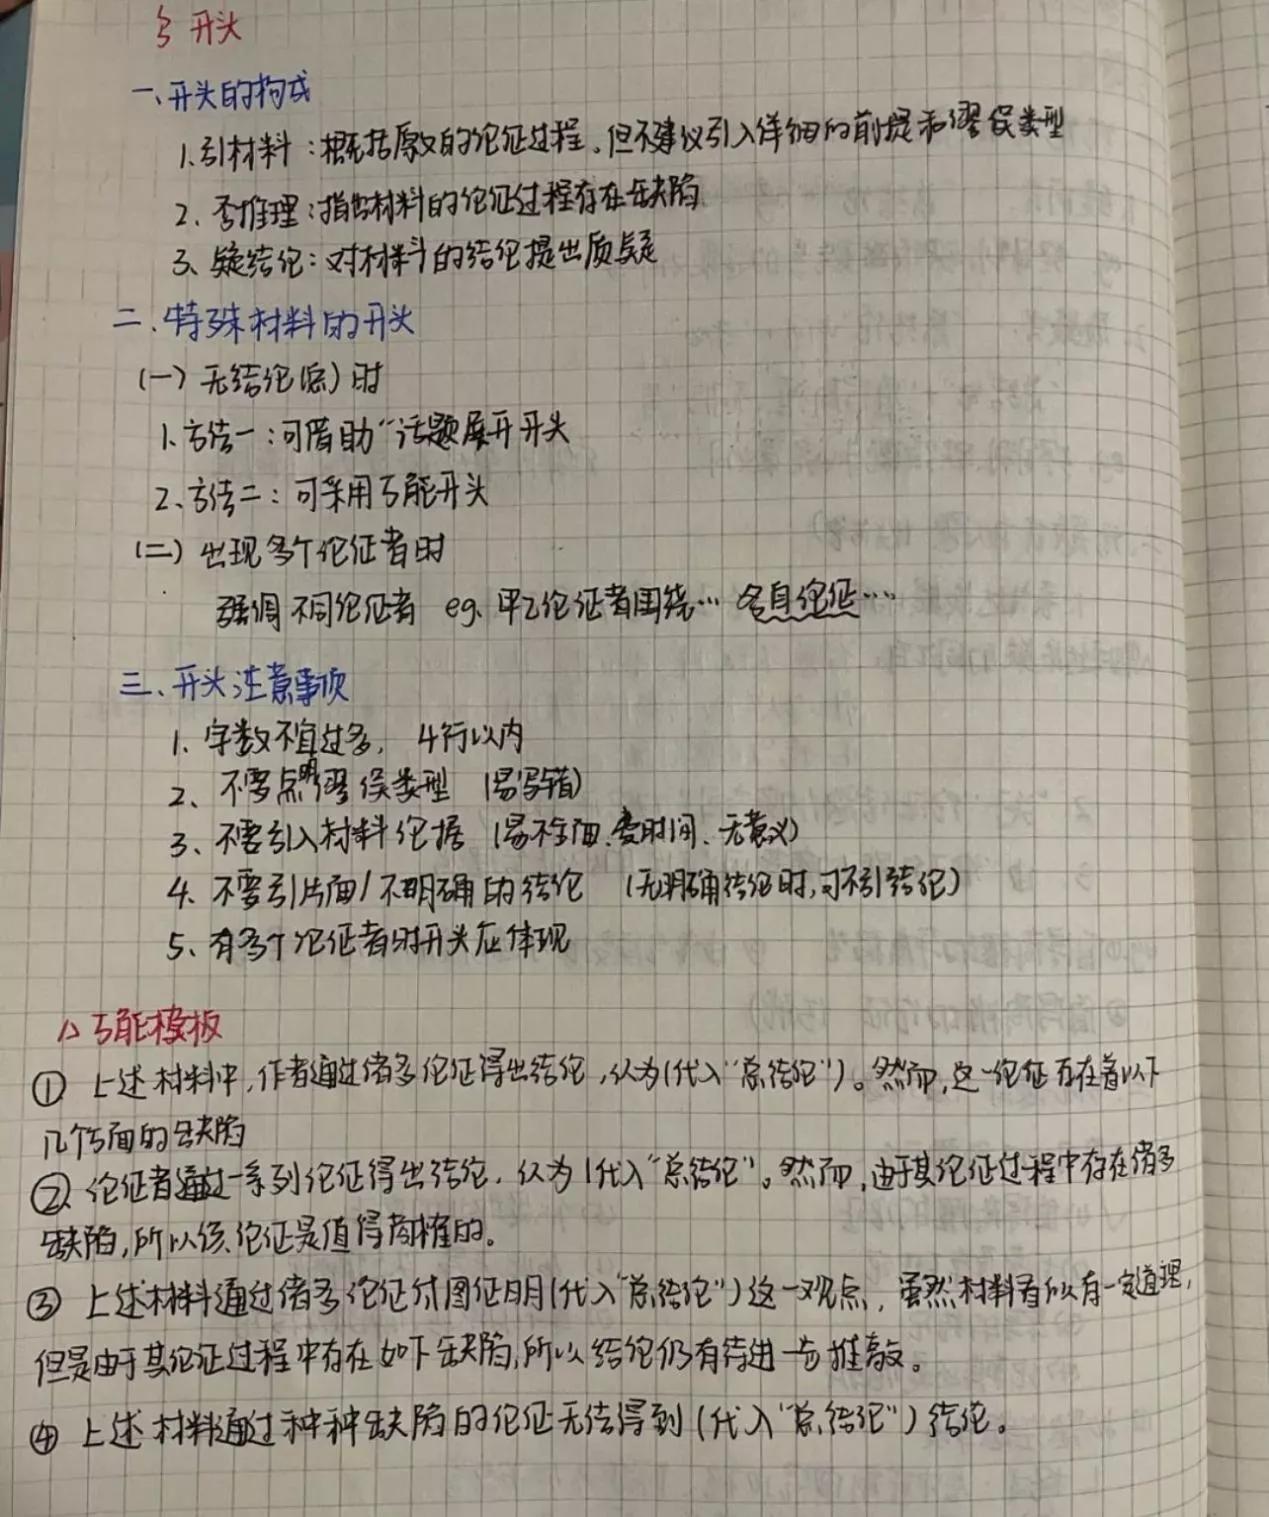 § 开头
一、开头的构成
1、引材料：概括原文的论证过程。但不建议引入详细的前提和谬误类型
2、否推理：指出材料的论证过程存在缺陷
3、疑结论：对材料的结论提出质疑
二、特殊材料的开头
(一) 无结论(总)时
1、方法一：可借助“话题展开开头
2、方法二：可采用万能开头
(二) 出现多个论证者时
强调不同论证者 eg. 甲乙论证者围绕… 各自论证…
三、开头注意事项
1、字数不宜过多, 4行以内
2、不要点明谬误类型 (易写错)
3、不要引入材料论据 (易不全面、费时间、无意义)
4、不要引片面/不明确的结论 (无明确结论时,可不引结论)
5、有多个论证者时开头应体现
△万能模板
① 上述材料中,作者通过诸多论证得出结论,认为(代入“总结论”)。然而,这一论证存在着以下
几个方面的缺陷
② 论证者通过一系列论证得出结论,认为(代入“总结论”。然而,由于其论证过程中存在诸多
缺陷,所以该论证是值得商榷的。
③ 上述材料通过诸多论证试图证明(代入“总结论”)这一观点,虽然材料看似有一定道理,
但是由于其论证过程中存在如下缺陷,所以结论仍有待进一步推敲。
④ 上述材料通过种种缺陷的论证无法得到(代入“总结论”)结论。